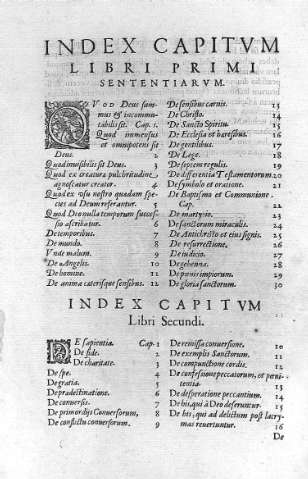 INDEX CAPITVM
LIBRI PRIMI
SENTENTIARVM.
QVOD Deus sum-
mus & incommu-
tabilis sit. Cap. 1
Quod immensus
et omnipotens sit
Deus. 2
Quod inuisibilis sit Deus. 3
Quod ex creaturæ pulchritudine
agnoscatur creator. 4
Quod ex usu nostro quædam spe-
cies ad Deum referantur. 5
Quod Deo nulla temporum succes-
sio ascribatur. 6
De temporibus. 7
De mundo. 8
Vnde malum. 9
De Angelis. 10
De homine. 11
De anima cæterisque sensibus. 12
De sensibus carnis. 13
De Christo. 14
De Sancto Spiritu. 15
De Ecclesia et hæresibus. 16
De gentilibus. 17
De Lege. 18
De septem regulis. 19
De differentia Testamentorum. 20
De symbolo et oratione. 21
De Baptismo et Communione.
Cap. 22
De martyrio. 23
De sanctorum miraculis. 24
De Antichristo et eius signis. 25
De resurrectione. 26
De iudicio. 27
De gehenna. 28
De pœnis impiorum. 29
De gloria sanctorum. 30
INDEX CAPITVM
Libri Secundi.
DE sapientia. Cap. 1
De fide. 2
De charitate. 3
De spe. 4
De gratia. 5
De prædestinatione. 6
De conuersis. 7
De primordijs Conuersorum. 8
De conflictu conuersorum. 9
De remissa conuersione. 10
De exemplis Sanctorum. 11
De compunctione cordis. 12
De confessione peccatorum, et pœni-
tentia. 13
De desperatione peccantium. 14
De his, qui à Deo deseruntur. 15
De his, qui ad delictum post lacry-
mas reuertuntur. 16
De